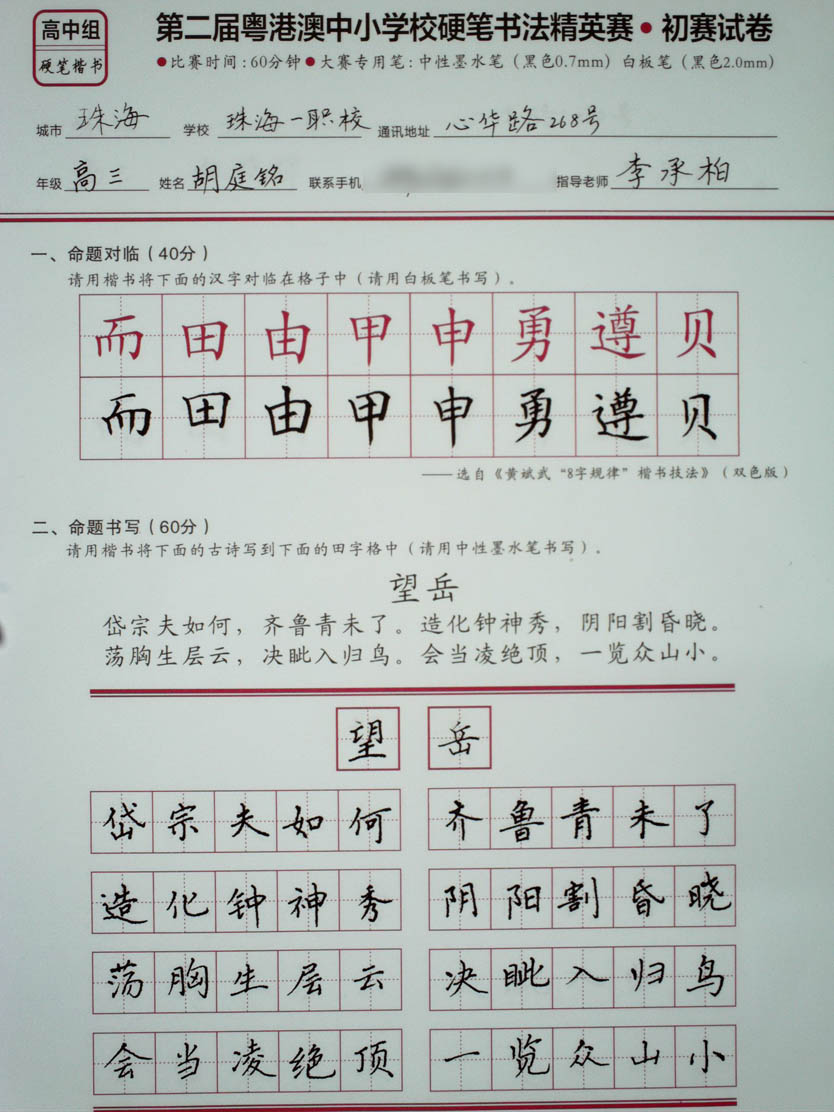 高中组
硬笔楷书
第二届粤港澳中小学校硬笔书法精英赛•初赛试卷
●比赛时间:60分钟●大赛专用笔:中性墨水笔(黑色0.7mm)白板笔(黑色2.0mm)
城市 珠海 学校 珠海一职校 通讯地址 心华路268号
年级 高三 姓名 胡庭铭 联系手机 指导老师 李承柏
一、命题对临(40分)
请用楷书将下面的汉字对临在格子中(请用白板笔书写)。
而田由甲申勇遵贝
而田由甲申勇遵贝
——选自《黄斌武“8字规律”楷书技法》(双色版)
二、命题书写(60分)
请用楷书将下面的古诗写到下面的田字格中(请用中性墨水笔书写)。
望岳
岱宗夫如何，齐鲁青未了。造化钟神秀，阴阳割昏晓。
荡胸生层云，决眦入归鸟。会当凌绝顶，一览众山小。
望岳
岱宗夫如何 齐鲁青未了
造化钟神秀 阴阳割昏晓
荡胸生层云 决眦入归鸟
会当凌绝顶 一览众山小